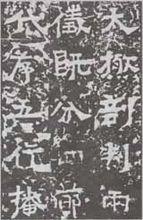 太極剖判兩
儀既分四節
代序五行播